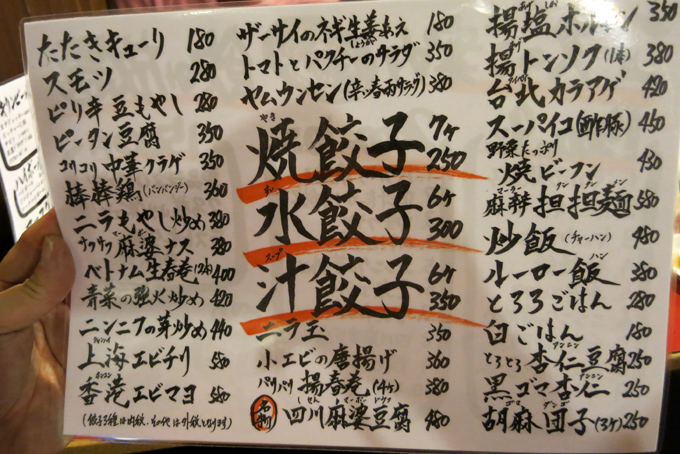 たたきキューリ 180
スモツ 280
ピリ辛豆もやし 280
ピータン豆腐 350
コリコリ中華クラゲ 350
棒棒鶏(バンバンジー) 360
ニラもやし炒め 380
麻婆ナス 380
ベトナム生春巻(2本) 400
青菜の強火炒め 420
ニンニクの芽炒め 440
上海エビチリ 550
香港エビマヨ 550
ザーサイのネギ生姜あえ 180
トマトとパクチーのサラダ 350
ヤムウンセン(辛い春雨サラダ) 380
焼餃子 7ヶ 250
水餃子 6ヶ 300
汁餃子 6ヶ 350
ニラ玉 350
小エビの唐揚げ 360
パリパリ揚春巻(4ヶ) 380
名物 四川麻婆豆腐 480
揚塩ホルモン 350
揚トンソク(1本) 380
台北カラアゲ 420
スーパイコ(酢豚) 450
野菜たっぷり
焼ビーフン 430
麻辣担担麺 580
炒飯(チャーハン) 480
ルーロー飯 350
とろろごはん 280
白ごはん 150
とろとろ杏仁豆腐 250
黒ゴマ杏仁 250
胡麻団子(3ヶ) 250